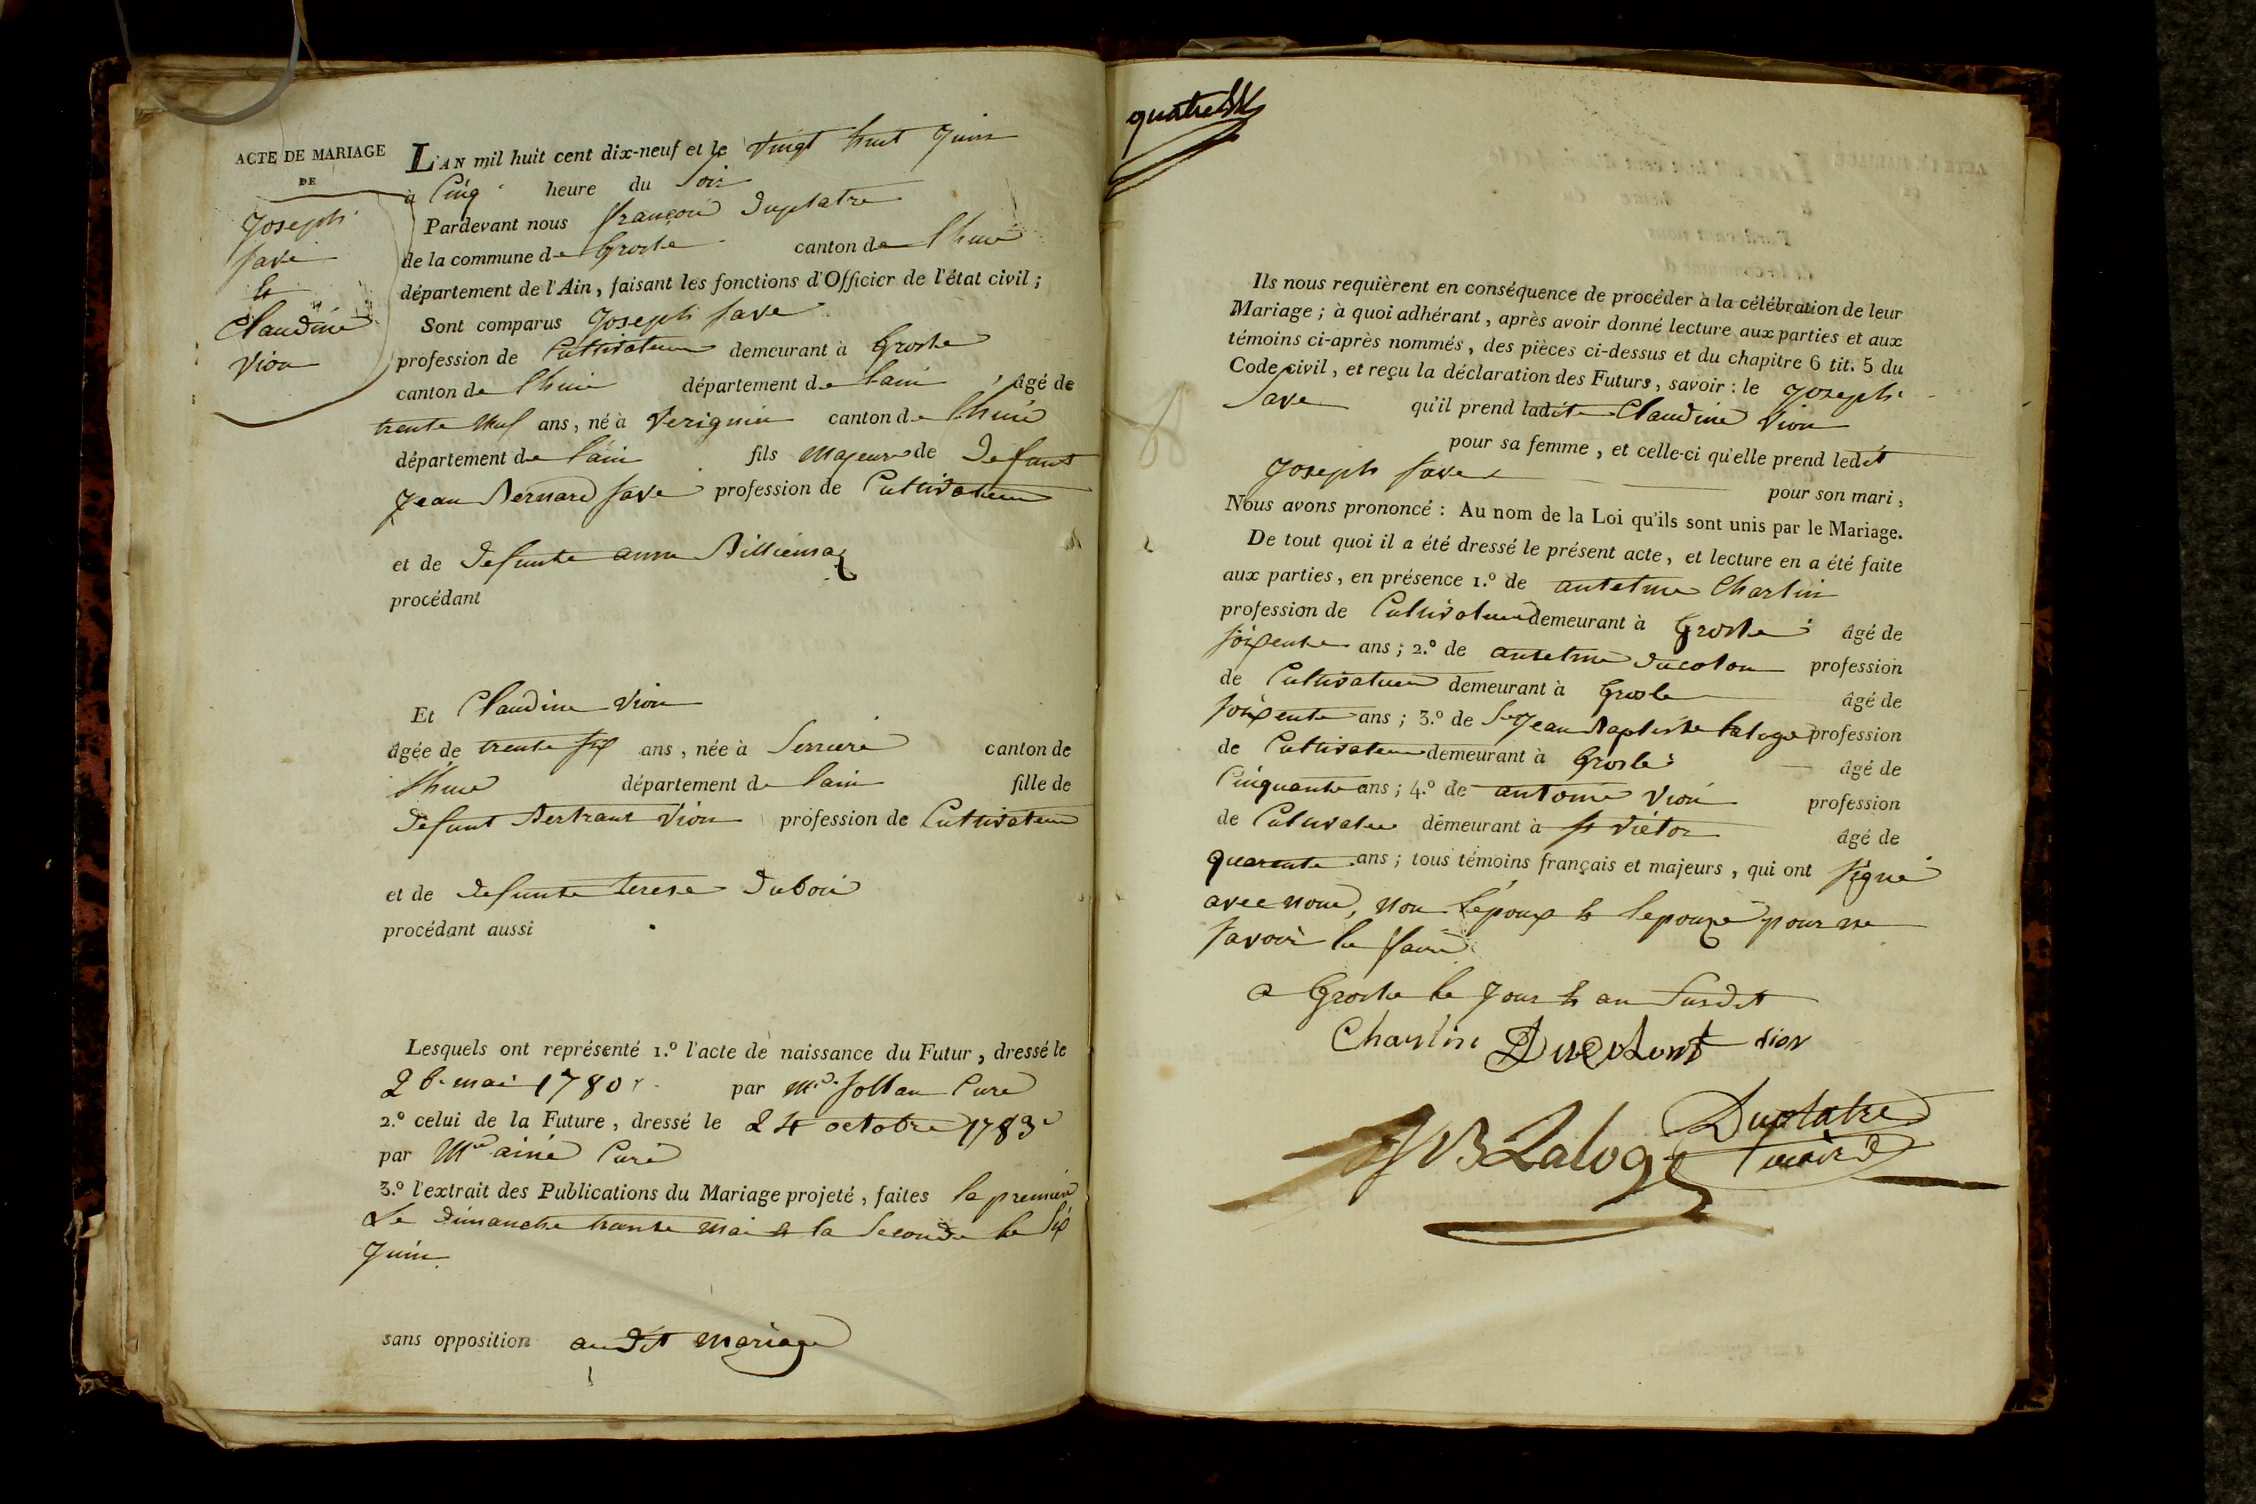 ACTE DE MARIAGE
DE
Joseph
fave
et
Claudine
Vion
L'AN mil huit cent dix-neuf et le vingt huit Juin
à Cinq heure du Soir
Pardevant nous françois Duplatre
de la commune de Groslé canton de Lhuis
département de l'Ain, faisant les fonctions d'Officier de l'état civil;
Sont comparus Joseph fave
profession de Cultivateur demeurant à Groslé
canton de Lhuis département de lain, âgé de
trente neuf ans, né à canton de Lhuis
département de lain fils majeur de Defunt
Jean Bernard fave profession de Cultivateur
et de Defunte anne
procédant
Et Claudine Vion
âgée de trente six ans, née à canton de
Lhuis département de lain fille de
Defunt Bertrant Vion profession de Cultivateur
et de Defunte terese Duboi
procédant aussi
Lesquels ont représenté 1.º l'acte de naissance du Futur, dressé le
26 mai 1780 par Curé
2.º celui de la Future, dressé le 24 octobre 1783
par ainé Curé
3.º l'extrait des Publications du Mariage projeté, faites la premiere
Le Dimanche trante mai et la Seconde le Six
Juin
sans opposition audit mariage
Ils nous requièrent en conséquence de procéder à la célébration de leur
Mariage; à quoi adhérant, après avoir donné lecture aux parties et aux
témoins ci-après nommés, des pièces ci-dessus et du chapitre 6 tit. 5 du
Code civil, et reçu la déclaration des Futurs, savoir: le Joseph
fave qu'il prend ladite Claudine Vion
pour sa femme, et celle-ci qu'elle prend ledit
Joseph fave pour son mari,
Nous avons prononcé: Au nom de la Loi qu'ils sont unis par le Mariage.
De tout quoi il a été dressé le présent acte, et lecture en a été faite
aux parties, en présence 1.º de antelme Charlin
profession de Cultivateur demeurant à Groslé âgé de
soixente ans; 2.º de antelme Ducolon profession
de Cultivateur demeurant à Grosle âgé de
soixente ans; 3.º de Sr Jean Baptiste Laloge profession
de Cultivateur demeurant à Groslé âgé de
Cinquante ans; 4.º de antoine Vion profession
de Cultivateur demeurant à âgé de
quarente ans; tous témoins français et majeurs, qui ont signé
avec nous, non lépoux et lepouze pour ne
savoir le faire
a Groslé le Jour et an Susdit
Charlin Ducolont vion
Duplatre
JB Laloge maire